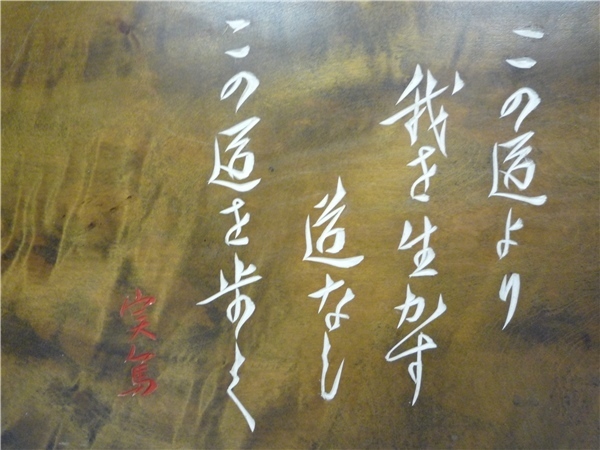 この道より
我を生かす
道なし
この道を歩く
実篤